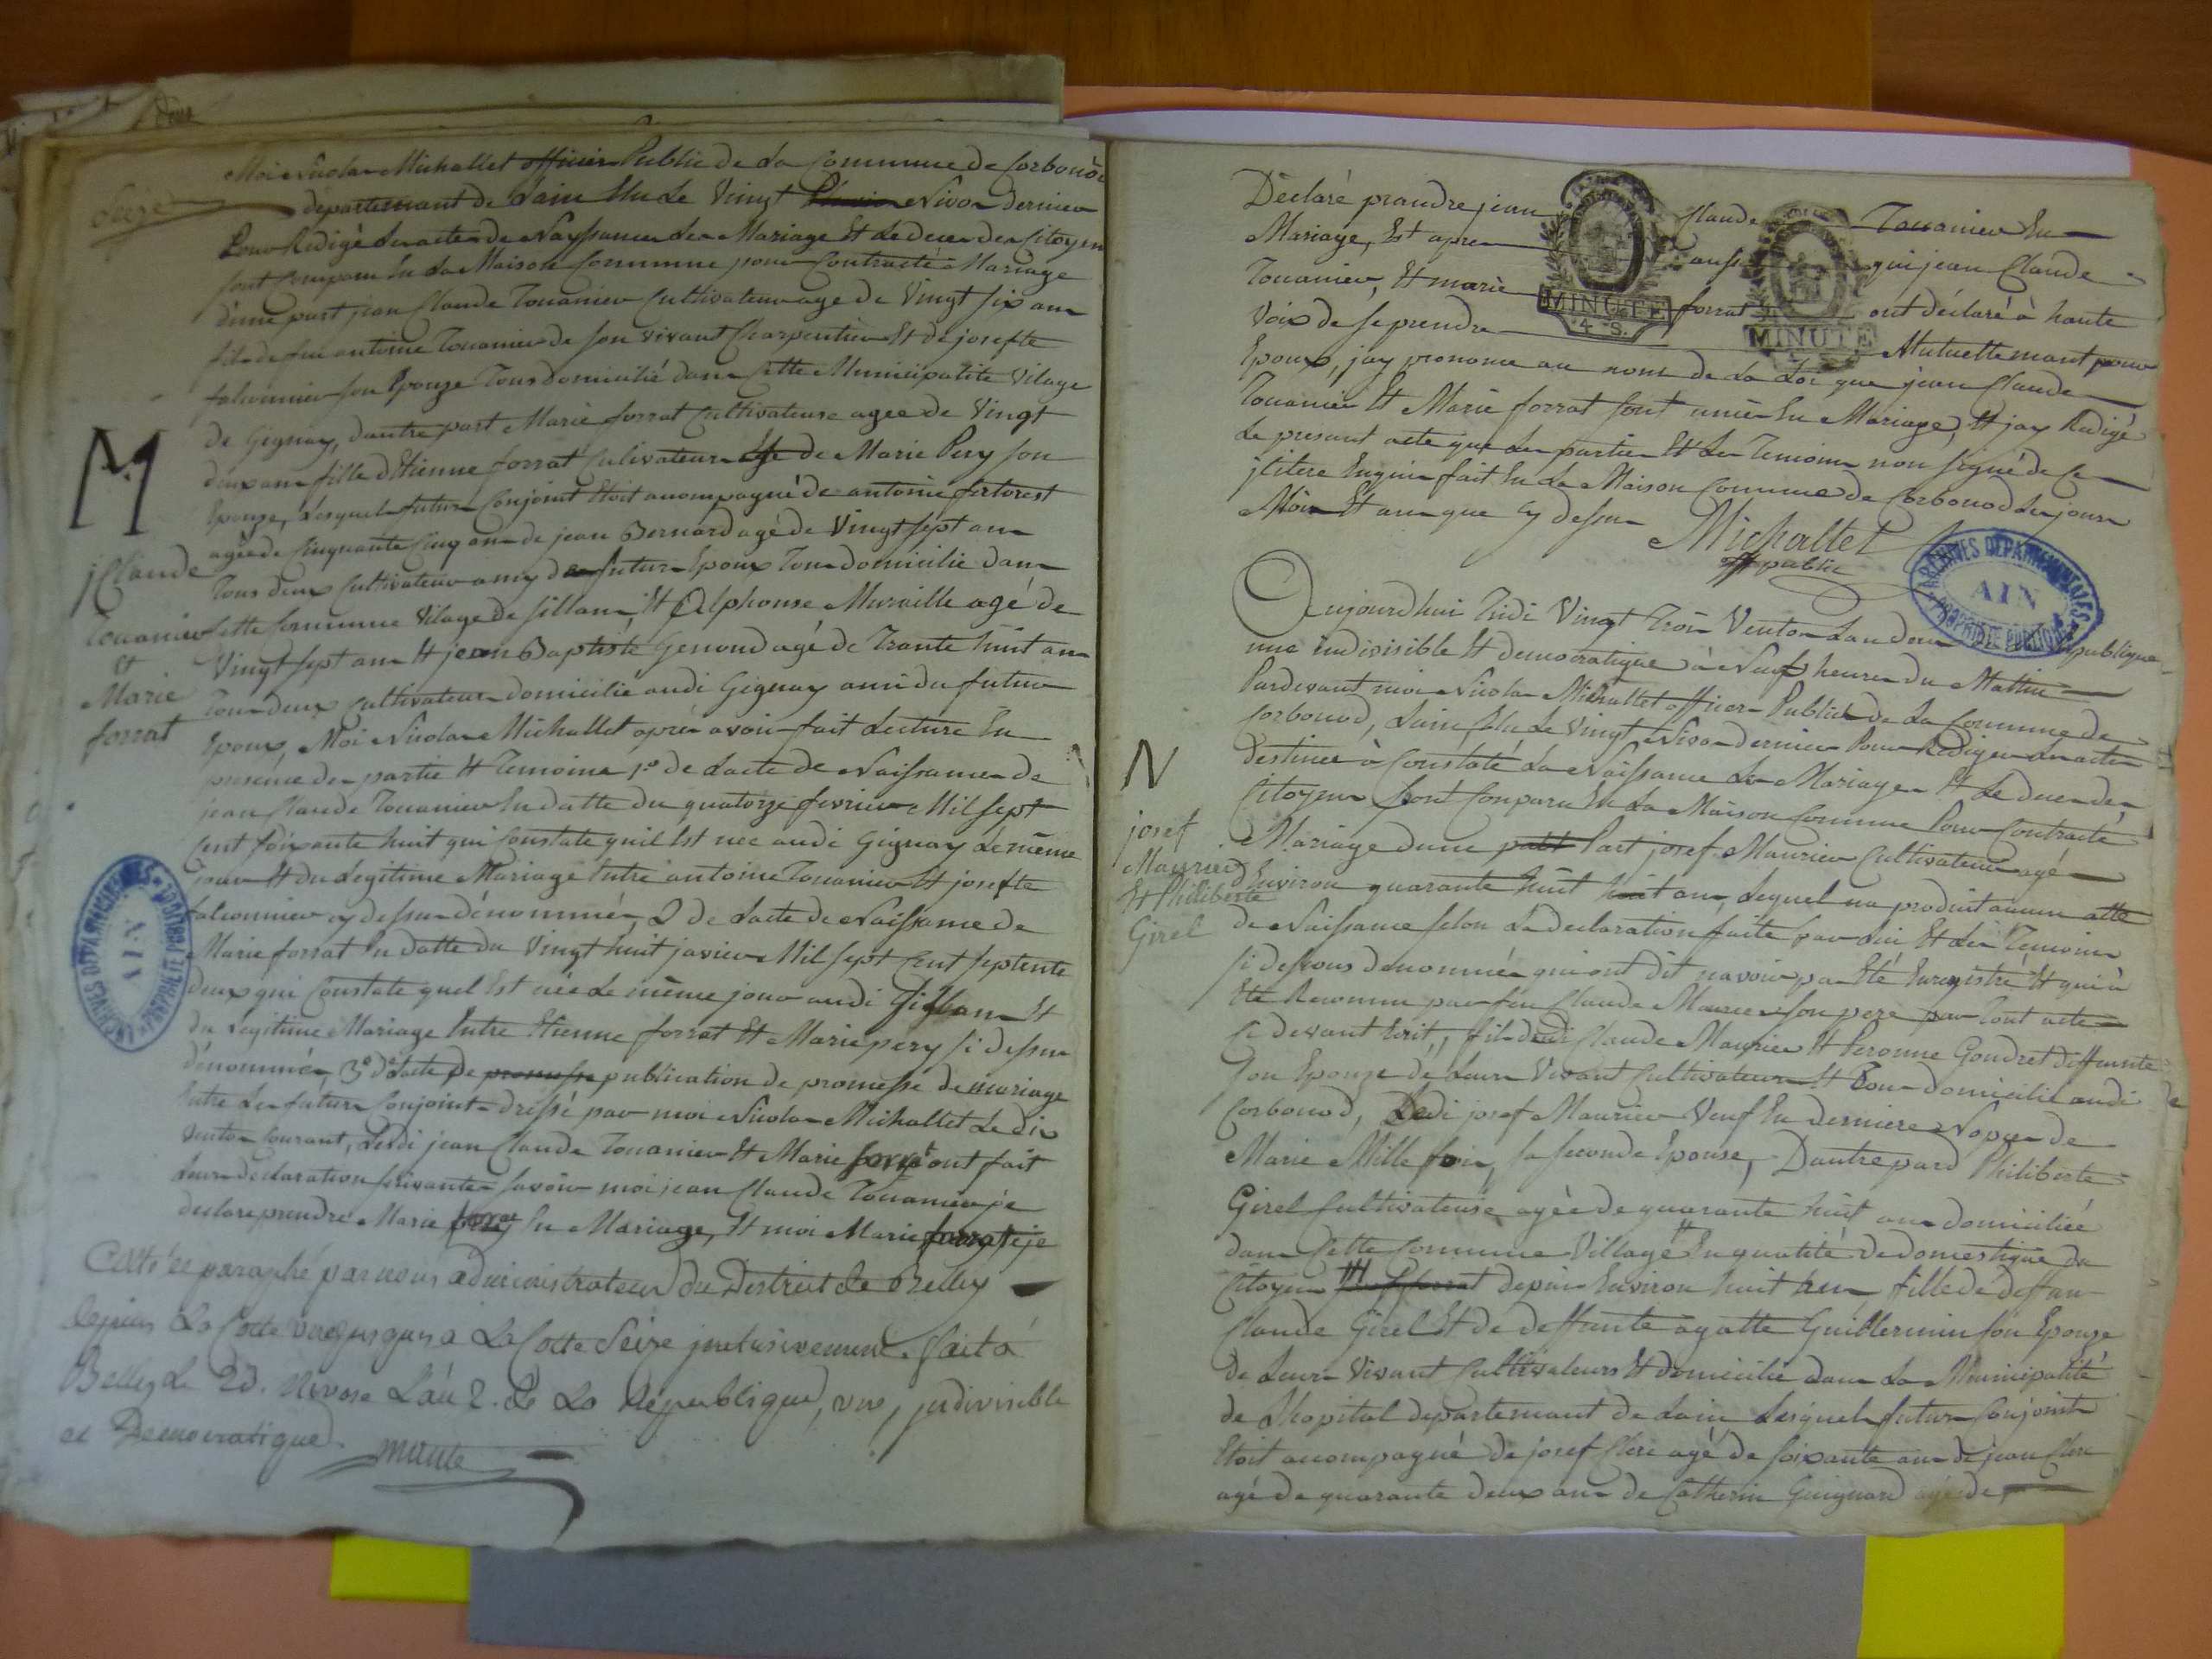 Seize
Moi Nicolas Michallet officier Public de La Commune de Corbonod
département de Lain Elu Le Vingt Nivos dernier
Pour Redigé Les actes de Nayssances Les Mariage Et Le deces des Citoyens
sont comparu En La Maison Commune pour Contracté Mariage
dune part jean Claude Touanier Cultivateur age de Vingt six ans
fils de feu antoine Touanier de son vivant Charpentier Et de josefte
falconnier son Epouze Tous domicilié dans Cette Municipalité Vilage
de Gignay, dautre part Marie forrat Cultivateuse agee de Vingt
deux ans fille dEtienne forrat Culivateur Et de Marie Pery son
Epouze, Lesquels futurs Conjoint Etoit acompagné de antoine fertorest
agée de Cinquante Cinq ans de jean Bernard agé de Vingt sept ans
Tous deux Cultivateur amy des futurs Epoux Tous domicilié dans
Cette Commune Vilage de sillans, Et Alphonse Muraille agé de
Vingt sept ans Et jean Baptiste Genoud agé de Trante huit ans
Tous deux Cultivateurs domicilié audi Gignay ami du futur
Epoux, Moi Nicolas Michallet aprés avoir fait Lecture En
presence des partie Et Temoins 1º de Lacte de Naissance de
jean Claude Touanier En datte du quatorze fevrier Mil sept
Cent soixante huit qui Constate quil Est nee audi Gignay Le même
jour Et du Legitime Mariage Entre antoine Touanier Et josefte
falconnier cy dessus dénommés, 2 de Lacte de Naissance de
Marie forrat En datte du Vingt huit javier Mil sept Cent septente
deux qui Constate quel Est née Le même jour audi Sillans Et
du Legitime Mariage Entre Etienne forrat Et Marie pery si dessus
dénommés, 3º de Lacte de promesse publication de promesse de mariage
Entre Les futurs Conjoint dressé par moi Nicolas Michallet Le dix
Ventos Courant, Lesdi jean Claude Touanier Et Marie forrat ont fait
Leurs déclaration suivantes savoir moi jean Claude Touanier je
declare prendre Marie forrat En Mariage, Et moi Marie forrat je
M
jClaude
Touanier
Et
Marie
forrat
Cotté et paraphé par nous administrateur du District de Belley
depuis La Cotte une jusques a La Cotte Seize inclusivement. fait a
Belley Le 23. Nivose L'an 2. de La République, une, indivisible
et Democratique.
ARCHIVES DÉPARTEMENTALES
AIN
PROPRIÉTÉ PUBLIQUE
Déclaré prandre jean Claude Touanier En
Mariage, Est apres aussi qui jean Claude
Touanier, Et marie forrat ont déclaré à haute
Voix de se prendre Mutuellemant pour
Epoux, jay prononce au nom de La Loi que jean Claude
Touanier Et Marie forrat sont unies En Mariage, Et jay Redigé
Le presant acte que Les parties Et Les Temoins non signé de Ce
jlitere Enquis fait En La Maison Commune de Corbonod Les jours
Mois Et ans que Cy dessus
Michallet
off public
MINUTE
4. S.
MINUTE
ARCHIVES DÉPARTEMENTALES
AIN
PROPRIÉTÉ PUBLIQUE
Aujourdhui Tridi Vingt Trois Ventos Lan deux Republique
une indivisible Et democratique à Neuf heures du Mattin
Pardevant moi Nicolas Michallet officier Public de La Commune de
Corbonod, Lain Elu Le Vingt Nivos dernier Pour Rediger Les actes
destinés à Constaté La Naissance Les Mariages Et Le deces des
Citoyens sont Conparu En La Maison Commune Pour Contracté
Mariage dune part Part josef Maurier Cultivateur agé
d Environ quarante huit huit ans, Lequel na produit aucun acte
de Naissance selon La declaration faite par Lui Et Les Temoins
si dessous denommés qui ont dit navoir pas Eté Enregistré Et qui à
Eté Reconnu par feu Claude Maurier son pere par Tout acte
si devant Ecrit, fils dudi Claude Maurier Et Peronne Goudret deffunte
son Epouze de Leurs Vivant Cultivateurs Et Tous domicilié audi
Corbonod, Ledi josef Maurier Veuf En derniere Nopces de
Marie Mille fois, sa seconde Epouse, Dautre pard Philiberte
Girel Cultivateuse agée de quarante huit ans domiciliée
dans Cette Commune Village En qualité de domestique du
Citoyen forrat depuis Environ huit ans, fille de deffun
Claude Girel Et de deffunte agatte Guillermin son Epouze
de Leurs Vivant Cultivateurs Et domicilié dans La Municipalité
de Lhopital departemant de Lain Lesquels futurs Conjoints
Etoit acompagné de josef Clerc agé de soixante ans de jean Clerc
agé de quarante deux ans de Catherin Guignard agé de
N
josef
Maurier
Et Philiberte
Girel